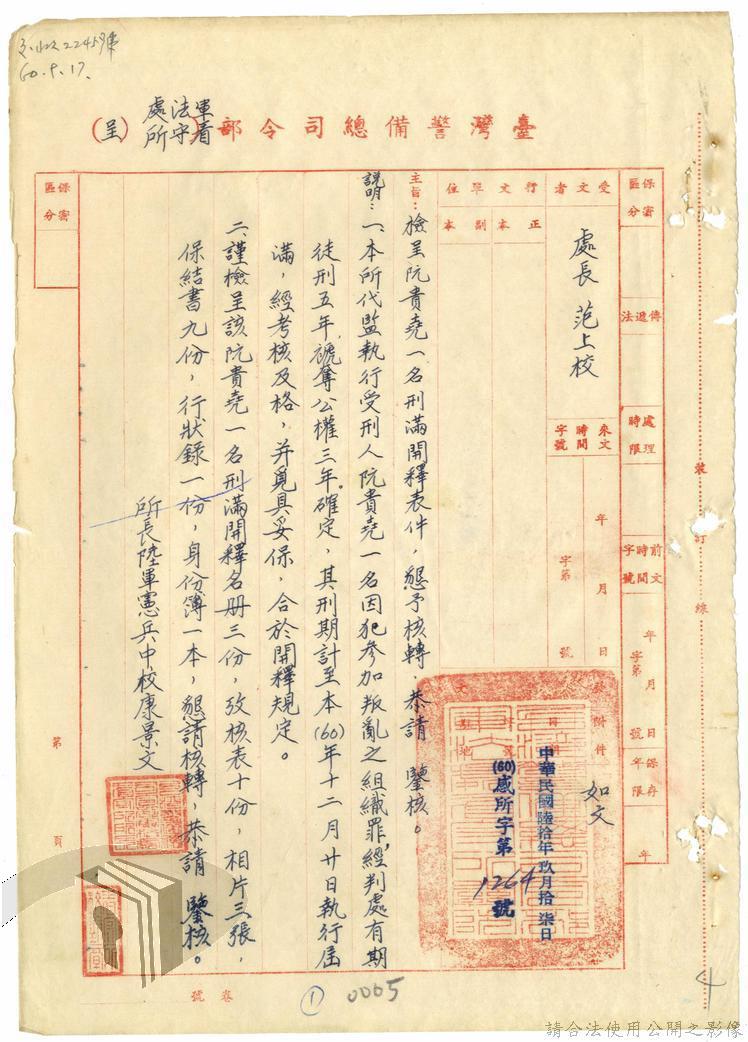 60.9.17.
臺灣警備總司令部
軍法處
看守所
(呈)
保密
區分
受文者
處長 范上校
傳遞法
處理
時限
前文
時間
字號
年月日
字第
號
保存
年限
年
來文
時間
字號
年月日
字第
號
行文單位
正本
副本
附件
如文
中華民國陸拾年玖月拾柒日
(60)感所字第
1264
號
保密
區分
主旨:檢呈阮貴堯一名刑滿開釋表件,懇予核轉,恭請 鑒核。
說明:一、本所代監執行受刑人阮貴堯一名因犯參加叛亂之組織罪,經判處有期
徒刑五年,褫奪公權三年。確定,其刑期計至本(60)年十二月廿日執行屆
滿,經考核及格,并覓具妥保,合於開釋規定。
二、謹檢呈該阮貴堯一名刑滿開釋名册三份,攷核表十份,相片三張,
保結書九份,行狀錄一份,身份簿一本,懇請核轉,恭請 鑒核。
所長陸軍憲兵中校康景文
裝訂線
第頁
卷號
① 0005
4
請合法使用公開之影像